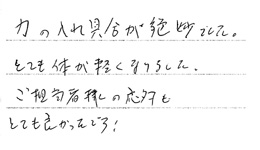 力の入れ具合が絶妙でした。
とても体が軽くなりました。
ご担当者様の応対も
とても良かったです！